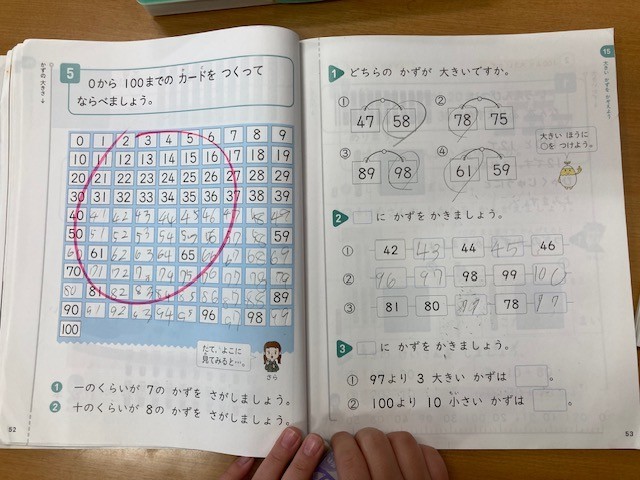 かずの 大きさ
5
0から 100までの カードを つくって
ならべましょう。
0 1 2 3 4 5 6 7 8 9
10 11 12 13 14 15 16 17 18 19
20 21 22 23 24 25 26 27 28 29
30 31 32 33 34 35 36 37 38 39
40 41 42 43 44 45 46 47 48 49
50 51 52 53 54 55 56 57 58 59
60 61 62 63 64 65 66 67 68 69
70 71 72 73 74 75 76 77 78 79
80 81 82 83 84 85 86 87 88 89
90 91 92 93 94 95 96 97 98 99
100
たて、よこに
見てみると…。
さら
1 一のくらいが 7の かずを さがしましょう。
2 十のくらいが 8の かずを さがしましょう。
52
15
1 どちらの かずが 大きいですか。
① 47 58 ② 78 75
③ 89 98 ④ 61 59
大きい ほうに
○を つけよう。
2 □に かずを かきましょう。
① 42 43 44 45 46
② 96 97 98 99 100
③ 81 80 79 78 77
3 □に かずを かきましょう。
① 97より 3 大きい かずは □。
② 100より 10 小さい かずは □。
53